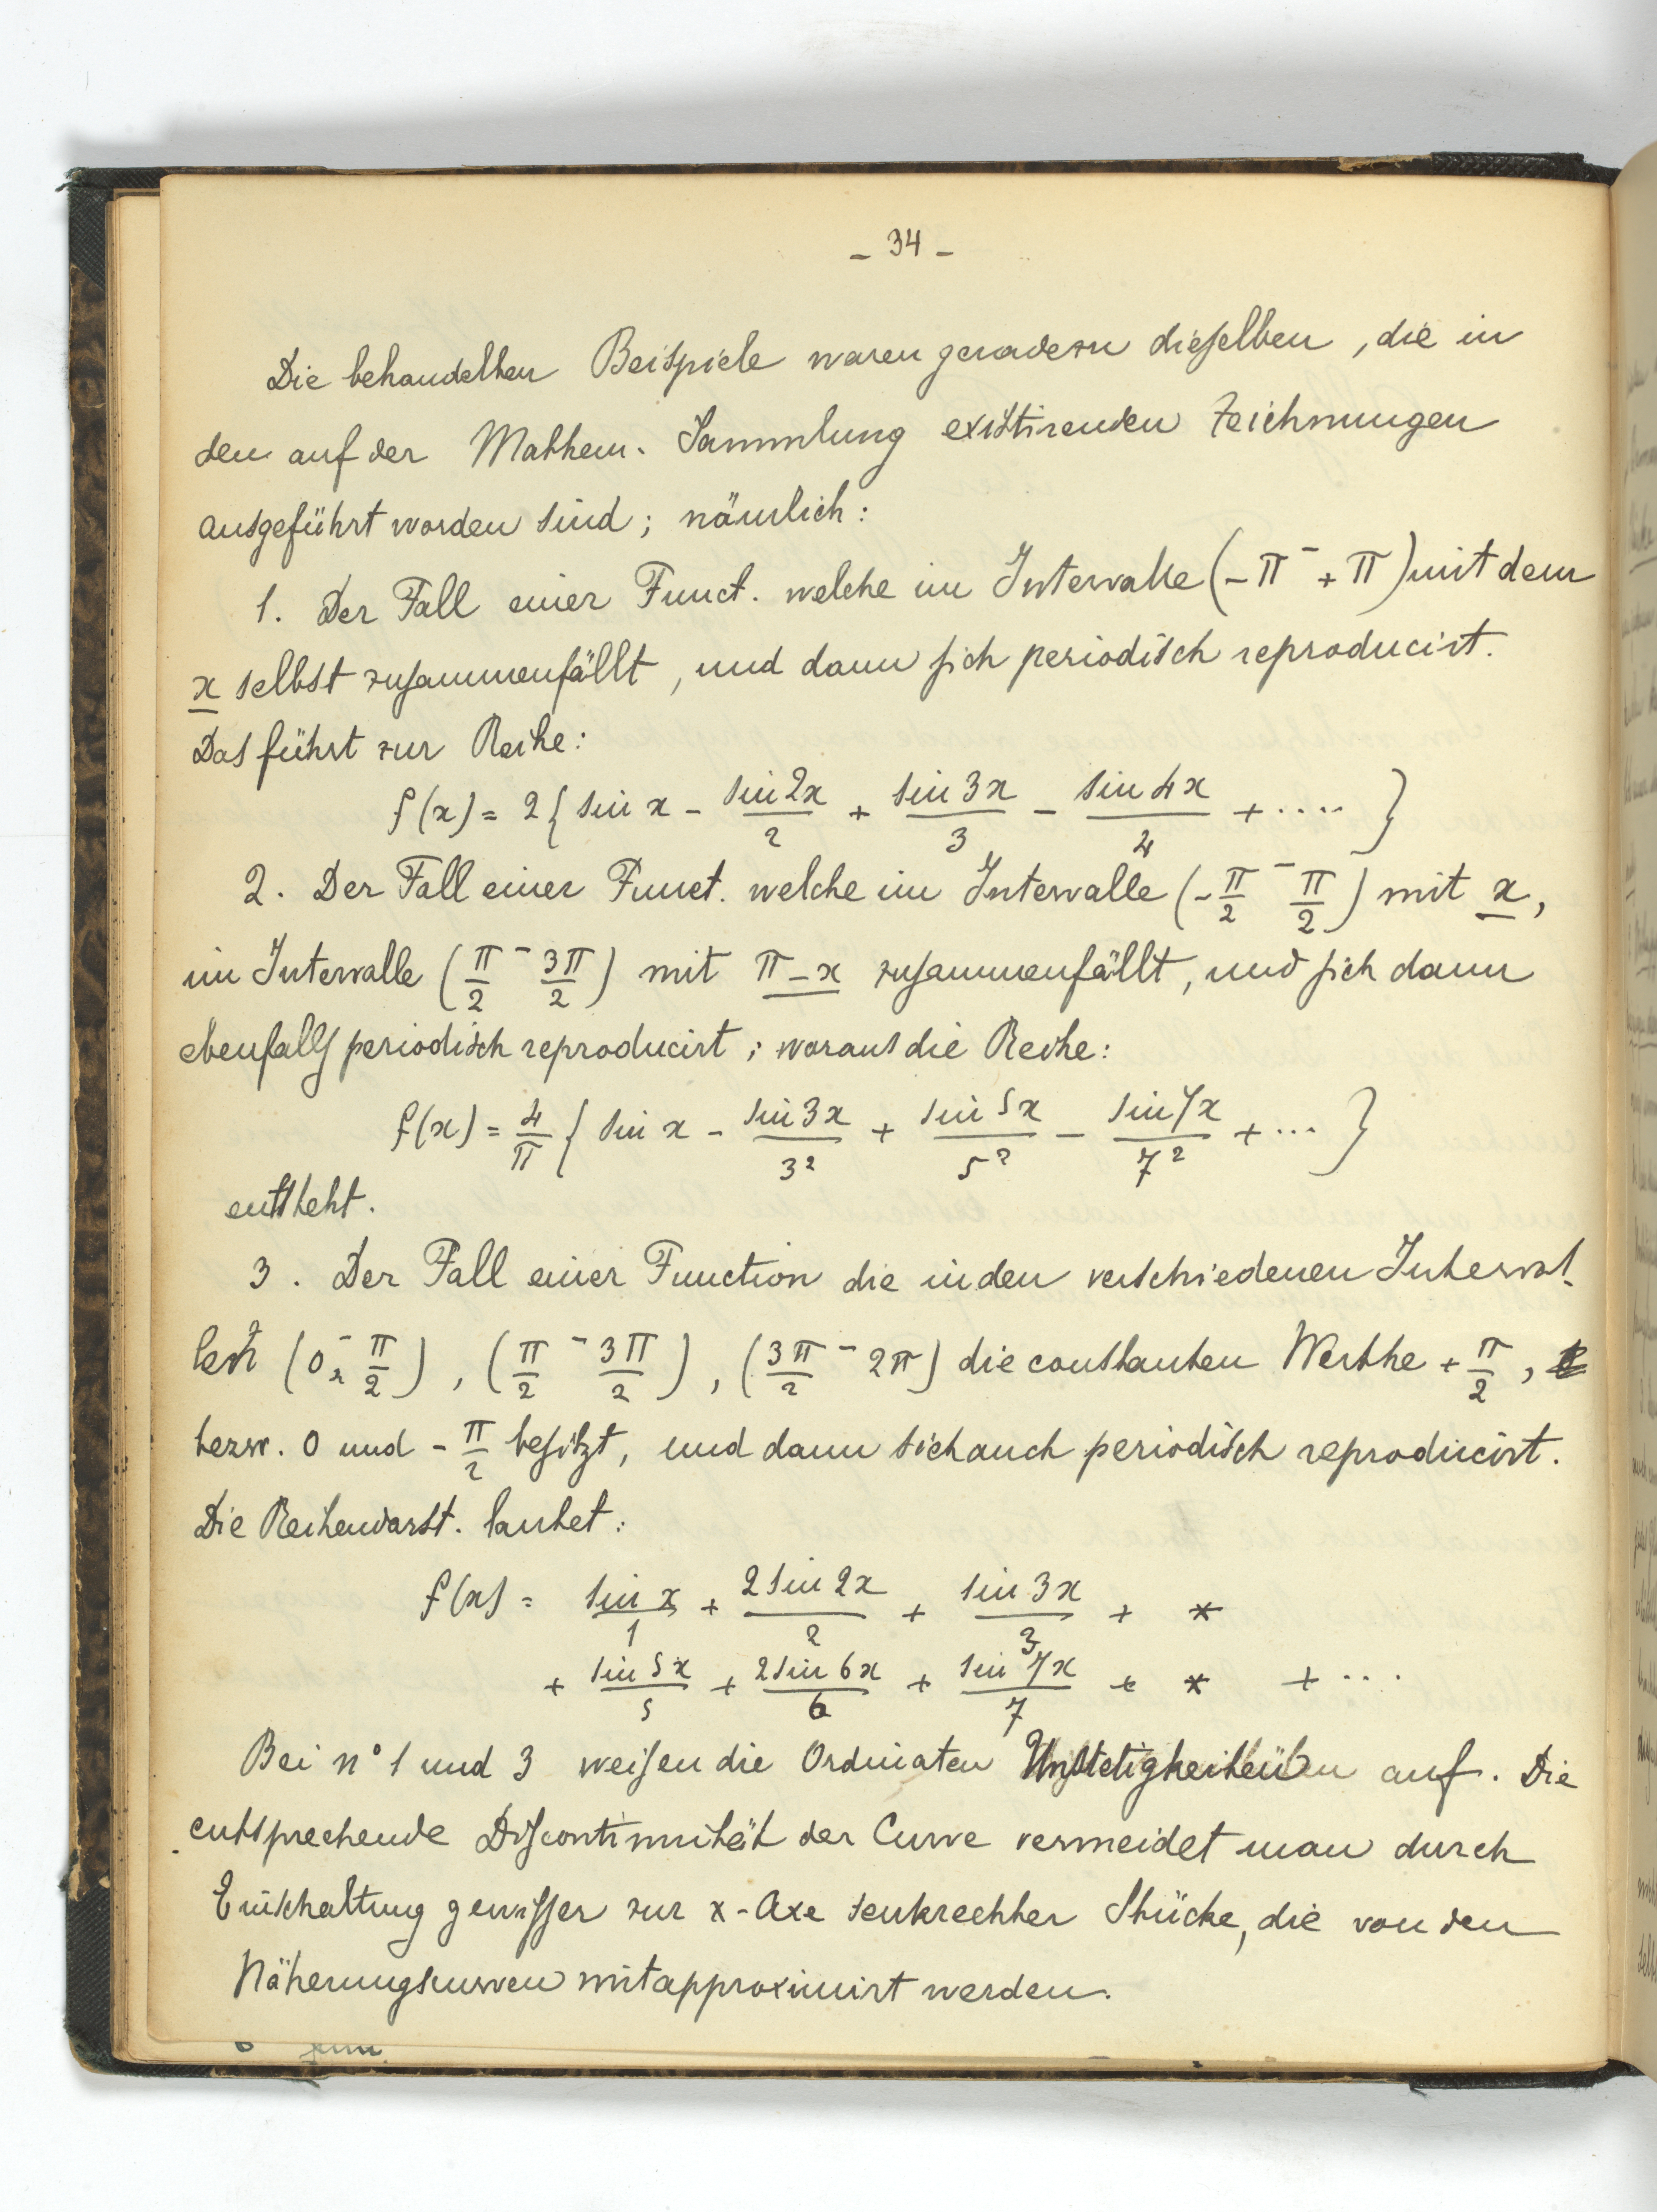 - 34 -
Die behandelten Beispiele waren geradezu dieselben, die in
den auf der Mathem. Sammlung existirenden Zeichnungen
ausgeführt worden sind; nämlich:
1. Der Fall einer Funct. welche im Intervalle (-π - +π) mit dem
x selbst zusammenfällt, und dann sich periodisch reproducirt.
Das führt zur Reihe:
f(x) = 2{ sin x - sin 2x/2 + sin 3x/3 - sin 4x/4 + .... }
2. Der Fall einer Funct. welche im Intervalle (-π/2 - π/2) mit x,
im Intervalle (π/2 - 3π/2) mit π-x zusammenfällt, und sich dann
ebenfalls periodisch reproducirt; woraus die Reihe:
f(x) = 4/π { sin x - sin 3x/3² + sin 5x/5² - sin 7x/7² + ... }
entsteht.
3. Der Fall einer Function die in den verschiedenen Interval-
len (0 - π/2), (π/2 - 3π/2), (3π/2 - 2π) die constanten Werthe +π/2,
bezw. 0 und -π/2 besitzt, und dann sich auch periodisch reproducirt.
Die Reihendarst. lautet:
f(x) = sin x/1 + 2 sin 2x/2 + sin 3x/3 + *
+ sin 5x/5 + 2 sin 6x/6 + sin 7x/7 + * + ...
Bei n° 1 und 3 weisen die Ordinaten Unstetigkeiten auf. Die
entsprechende Discontinuität der Curve vermeidet man durch
Einschaltung gewisser zur x-Axe senkrechter Stücke, die von den
Näherungscurven mitapproximirt werden.